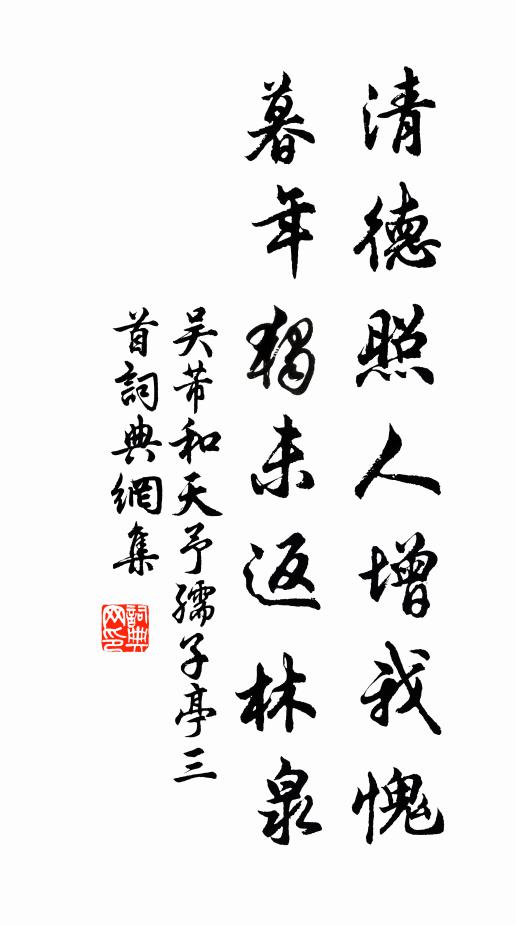 清德照人增我愧
暮年獨未返林泉
吴芾和天予孺子亭三
首詞典網集
詞典网印